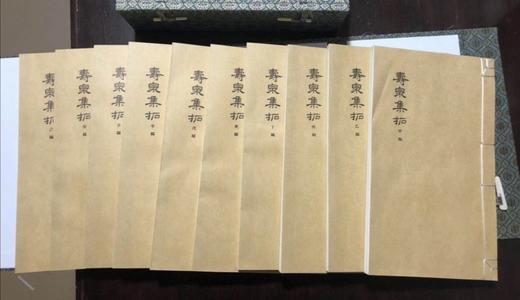 壽泉集拓
甲編
壽泉集拓
乙編
壽泉集拓
丙編
壽泉集拓
丁編
壽泉集拓
編
壽泉集拓
編
壽泉集拓
編
壽泉集拓
編
壽泉集拓
編
壽泉集拓
編